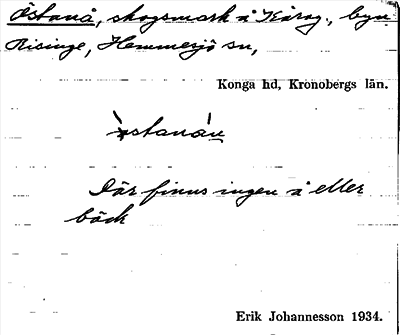 Östanå, skogsmark å Kårag., byn
Risinge, Hemmesjö sn,
Konga hd, Kronobergs län.
östanån
Där finns ingen å eller
bäck
Erik Johannesson 1934.